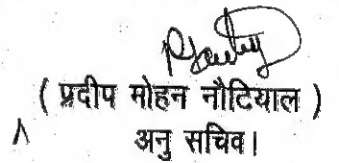 ( प्रदीप मोहन नौटियाल )
अनु सचिव।